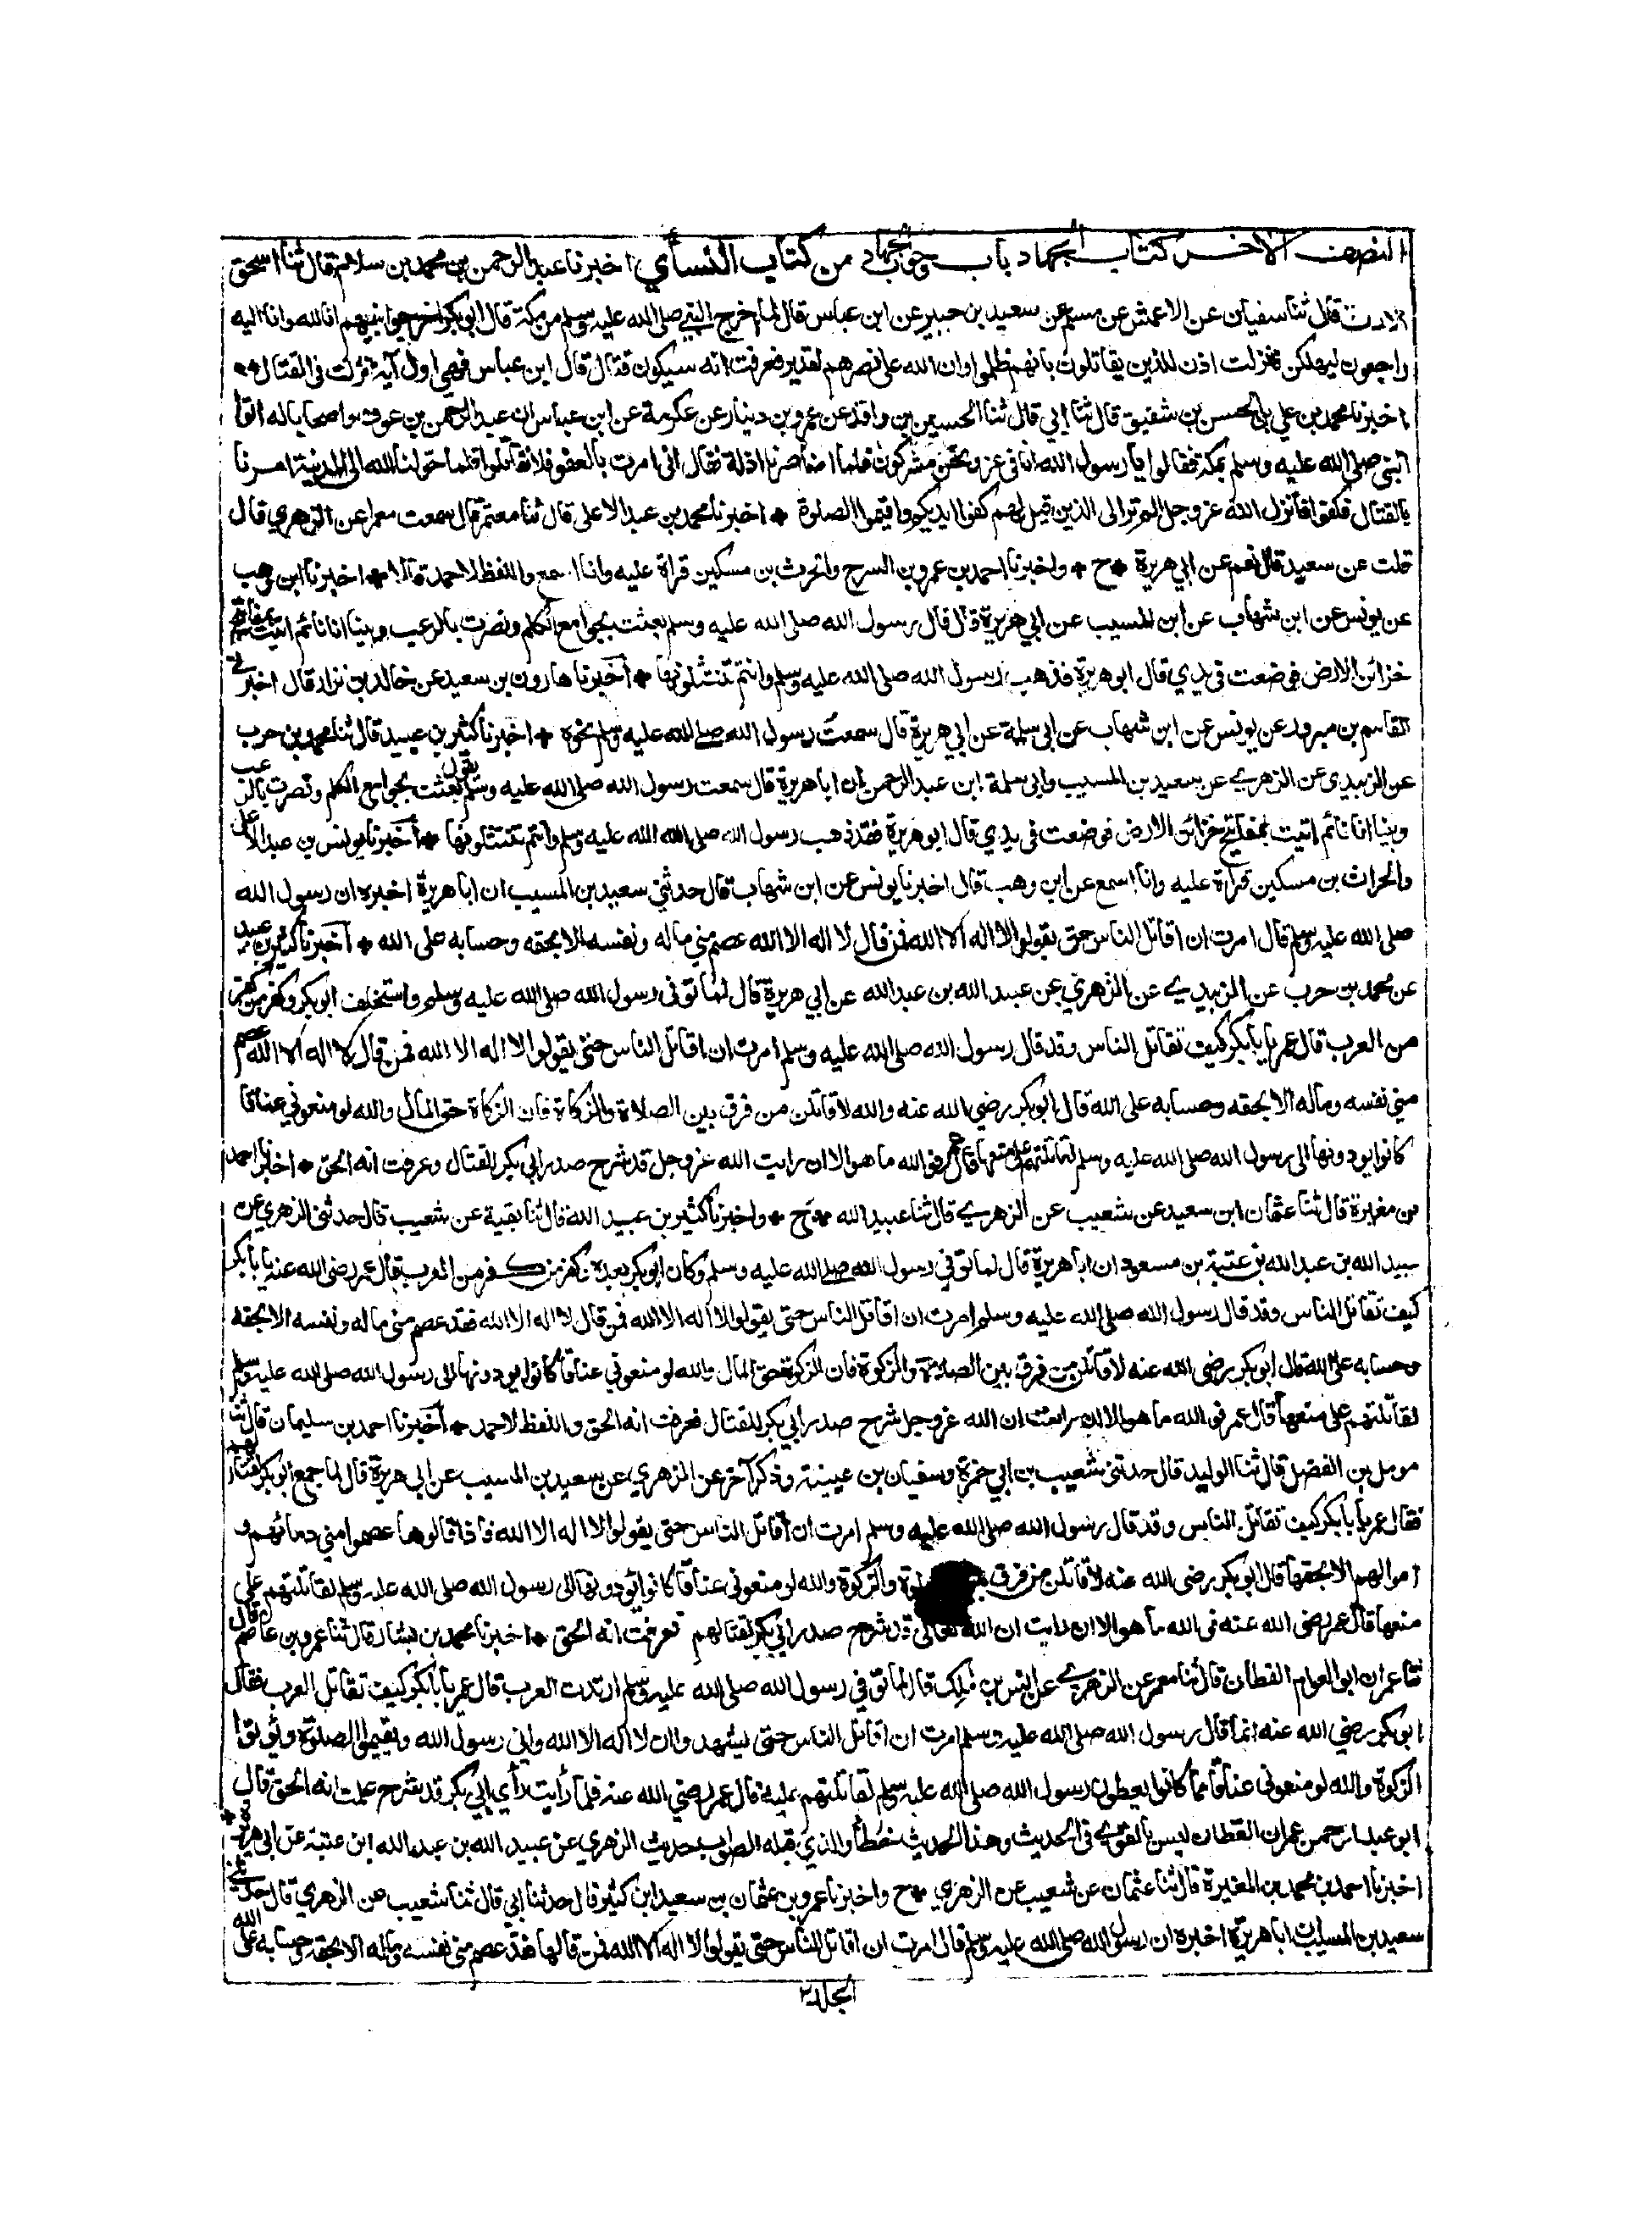 النصف الاخر كتاب الجهاد باب وجوب الجهاد من كتاب النسائي اخبرنا عبد الرحمن بن محمد بن سلام قال ثنا اسحق
الازرق قال ثنا سفيان عن الاعمش عن مسلم عن سعيد بن جبير عن ابن عباس قال لما اخرج النبي صلى الله عليه وسلم من مكة قال ابو بكر اخرجوا نبيهم انا لله وانا اليه
راجعون ليهلكن فنزلت اذن للذين يقاتلون بانهم ظلموا وان الله على نصرهم لقدير فعرفت انه سيكون قتال قال ابن عباس فهي اول آية نزلت في القتال
اخبرنا محمد بن علي بن الحسن بن شفيق قال ثنا ابي قال ثنا الحسين بن واقد عن عمرو بن دينار عن عكرمة عن ابن عباس ان عبد الرحمن بن عوف واصحابا له اتوا
النبي صلى الله عليه وسلم بمكة فقالوا يا رسول الله انا في عز ونحن مشركون فلما امنا صرنا اذلة فقال اني امرت بالعفو فلا تقاتلوا فلما حولنا الله الى المدينة امرنا
بالقتال فكفوا فانزل الله عز وجل الم تر الى الذين قيل لهم كفوا ايديكم واقيموا الصلوة * اخبرنا محمد بن عبد الاعلى قال ثنا معتمر قال سمعت معمرا عن الزهري قال
قلت عن سعيد قال نعم عن ابي هريرة * ح * واخبرنا احمد بن عمرو بن السرح والحرث بن مسكين قراة عليه وانا اسمع واللفظ لاحمد قالا * اخبرنا ابن وهب
عن يونس عن ابن شهاب عن ابن المسيب عن ابي هريرة قال قال رسول الله صلى الله عليه وسلم بعثت بجوامع الكلم ونصرت بالرعب وبينا انا نائم اتيت بمفاتيح
خزائن الارض فوضعت في يدي قال ابو هريرة فذهب رسول الله صلى الله عليه وسلم وانتم تنتثلونها * اخبرنا هارون بن سعيد عن خالد بن نزار قال اخبرني
القاسم بن مبرور عن يونس عن ابن شهاب عن ابي سلمة عن ابي هريرة قال سمعت رسول الله صلى الله عليه وسلم نحوه * اخبرنا كثير بن عبيد قال ثنا محمد بن حرب
عن الزبيدي عن الزهري عن سعيد بن المسيب وابي سلمة ابن عبد الرحمن ان ابا هريرة قال سمعت رسول الله صلى الله عليه وسلم يقول بعثت بجوامع الكلم ونصرت بالرعب
وبينا انا نائم اتيت بمفاتيح خزائن الارض فوضعت في يدي قال ابو هريرة فقد ذهب رسول الله صلى الله الله عليه وسلم وانتم تنتثلونها * اخبرنا يونس بن عبد الاعلى
والحراث بن مسكين قراة عليه وانا اسمع عن ابن وهب قال اخبرنا يونس عن ابن شهاب قال حدثني سعيد بن المسيب ان ابا هريرة اخبره ان رسول الله
صلى الله عليه وسلم قال امرت ان اقاتل الناس حتى يقولوا لا اله الا الله فمن قال لا اله الا الله عصم مني ماله ونفسه الا بحقه وحسابه على الله * اخبرنا كثير بن عبيد
عن محمد بن حرب عن الزبيدي عن الزهري عن عبيد الله بن عبد الله عن ابي هريرة قال لما توفي رسول الله صلى الله عليه وسلم واستخلف ابو بكر وكفر من كفر
من العرب قال عمر يا بابكر كيف تقاتل الناس وقد قال رسول الله صلى الله عليه وسلم امرت ان اقاتل الناس حتى يقولوا لا اله الا الله فمن قال لا اله الا الله عصم
مني نفسه وماله الا بحقه وحسابه على الله قال ابو بكر رضي الله عنه والله لاقاتلن من فرق بين الصلاة والزكاة فان الزكاة حق المال والله لو منعوني عناقا
كانوا يودونها الى رسول الله صلى الله عليه وسلم لقاتلتهم على منعها قال عمر فوالله ما هو الا ان رايت الله عز وجل قد شرح صدر ابي بكر القتال وعرفت انه الحق * اخبرنا احمد
بن مغيرة قال ثنا عثمان ابن سعيد عن شعيب عن الزهري قال ثنا عبيد الله * ح * واخبرنا كثير بن عبيد الله قال ثنا بقية عن شعيب قال حدثني الزهري عن
عبيد الله بن عبد الله بن عتبة بن مسعود ان ابا هريرة قال لما توفي رسول الله صلى الله عليه وسلم وكان ابو بكر بعده كفر من كفر من العرب قال عمر رضي الله عنه يا بابكر
كيف تقاتل الناس وقد قال رسول الله صلى الله عليه وسلم امرت ان اقاتل الناس حتى يقولوا لا اله الا الله فمن قال لا اله الا الله فقد عصم مني ماله ونفسه الا بحقه
وحسابه على الله قال ابو بكر رضي الله عنه لاقاتلن من فرق بين الصلوة والزكوة فان الزكوة حق المال والله لو منعوني عناقا كانوا يودونها الى رسول الله صلى الله عليه وسلم
لقاتلتهم على منعها قال عمر فوالله ما هو الا ان رايت ان الله عز وجل شرح صدر ابي بكر للقتال فعرفت انه الحق واللفظ لاحمد * اخبرنا احمد بن سليمان قال ثنا
مومل بن الفضل قال ثنا الوليد قال حدثني شعيب بن ابي حمزة وسفيان بن عيينة وذكر آخر عن الزهري عن سعيد بن المسيب عن ابي هريرة قال لما جمع ابو بكر لقتالهم
فقال عمر يا بابكر كيف تقاتل الناس وقد قال رسول الله صلى الله عليه وسلم امرت ان اقاتل الناس حتى يقولوا لا اله الا الله فاذا قالوها عصموا مني دمائهم و
اموالهم الا بحقها قال ابو بكر رضي الله عنه لاقاتلن من فرق والزكوة والله لو منعوني عناقا كانوا يودونها الى رسول الله صلى الله عليه وسلم لقاتلتهم على
منعها قال عمر رضي الله عنه فوالله ما هو الا ان رايت ان الله تعالى قد شرح صدر ابي بكر لقتالهم فعرفت انه الحق * اخبرنا محمد بن بشار قال ثنا عمرو بن عاصم قال
ثنا عمران ابو العوام القطان قال ثنا معمر عن الزهري عن انس بن مالك قال لما توفي رسول الله صلى الله عليه وسلم ارتدت العرب قال عمر يا بابكر كيف تقاتل العرب فقال
ابو بكر رضي الله عنه انما قال رسول الله صلى الله عليه وسلم امرت ان اقاتل الناس حتى يشهدوا ان لا اله الا الله واني رسول الله ويقيموا الصلوة ويؤتوا
الزكوة والله لو منعوني عناقا مما كانوا يعطون رسول الله صلى الله عليه وسلم لقاتلتهم عليه قال عمر رضي الله عنه فلما رأيت رأي ابي بكر قد شرح علمت انه الحق قال
ابو عبد الرحمن عمران القطان ليس بالقوي في الحديث وهذا الحديث خطأ والذي قبله الصواب حديث الزهري عن عبيد الله بن عبد الله ابن عتبة عن ابي هريرة *
اخبرنا احمد بن محمد بن المغيرة قال ثنا عثمان عن شعيب عن الزهري * ح واخبرنا عمرو بن عثمان بن سعيد ابن كثير قال حدثنا ابي قال ثنا شعيب عن الزهري قال حدثني
سعيد بن المسيب ان ابا هريرة اخبره ان رسول الله صلى الله عليه وسلم قال امرت ان اقاتل الناس حتى يقولوا لا اله الا الله فمن قالها فقد عصم مني نفسه وماله الا بحقه وحسابه على الله
المجلد ٢